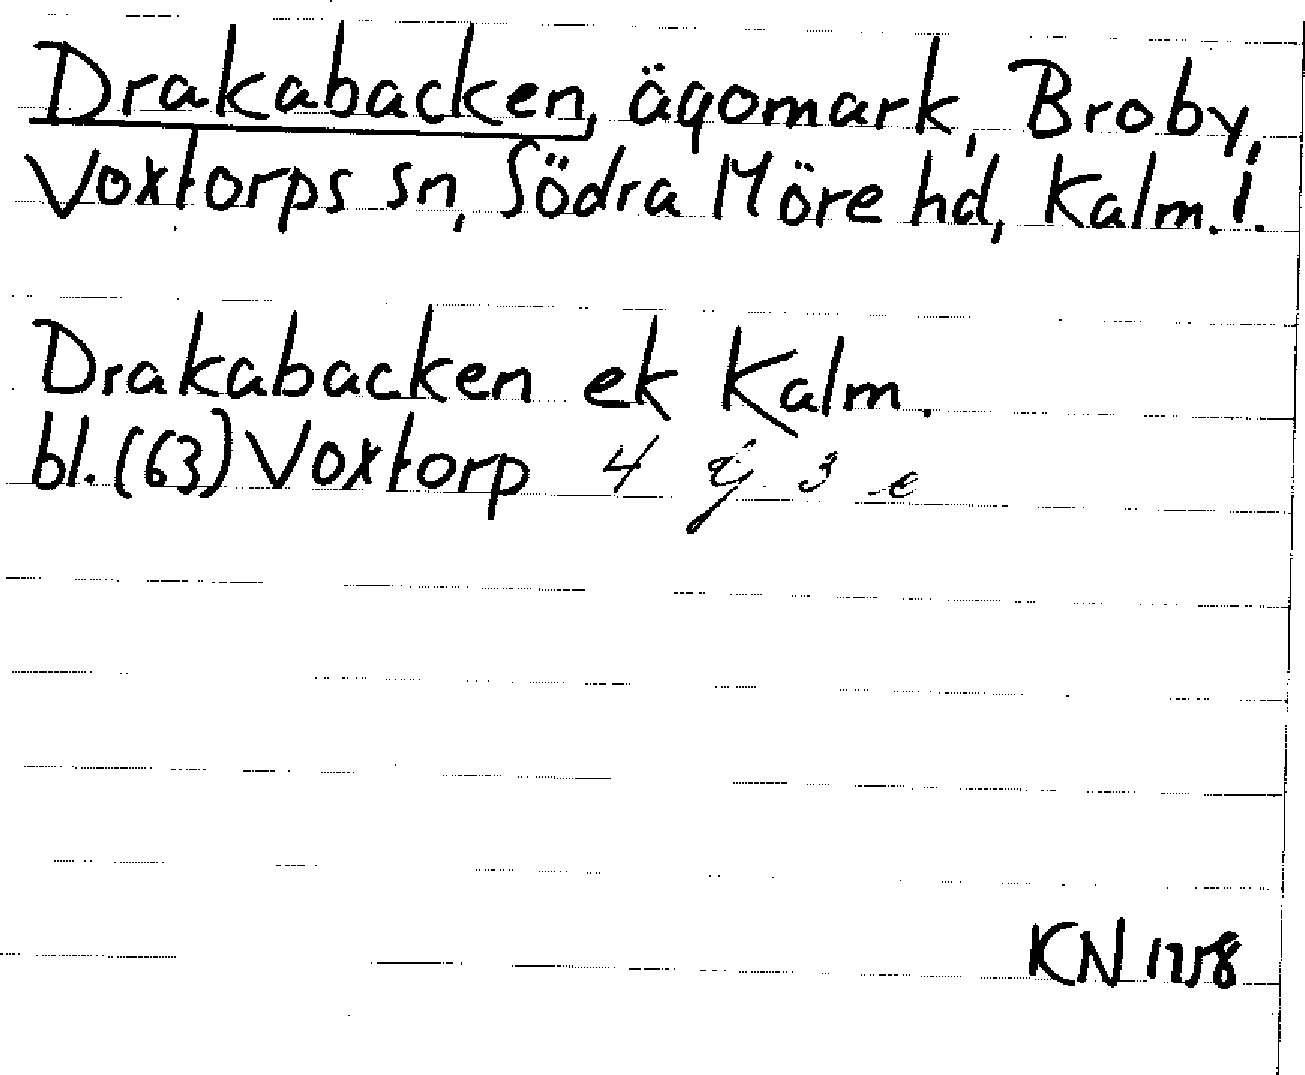 Drakabacken, ägomark, Broby,
Voxtorps sn, Södra Möre hd, Kalm. l.
Drakabacken ek Kalm.
bl. (63) Voxtorp 4 g 3 e
KN 1258